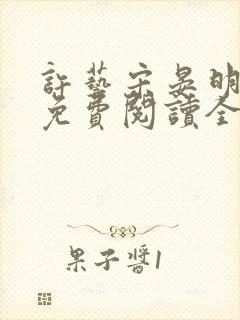 許藝宋晏明
免費閱讀全
果子醬1